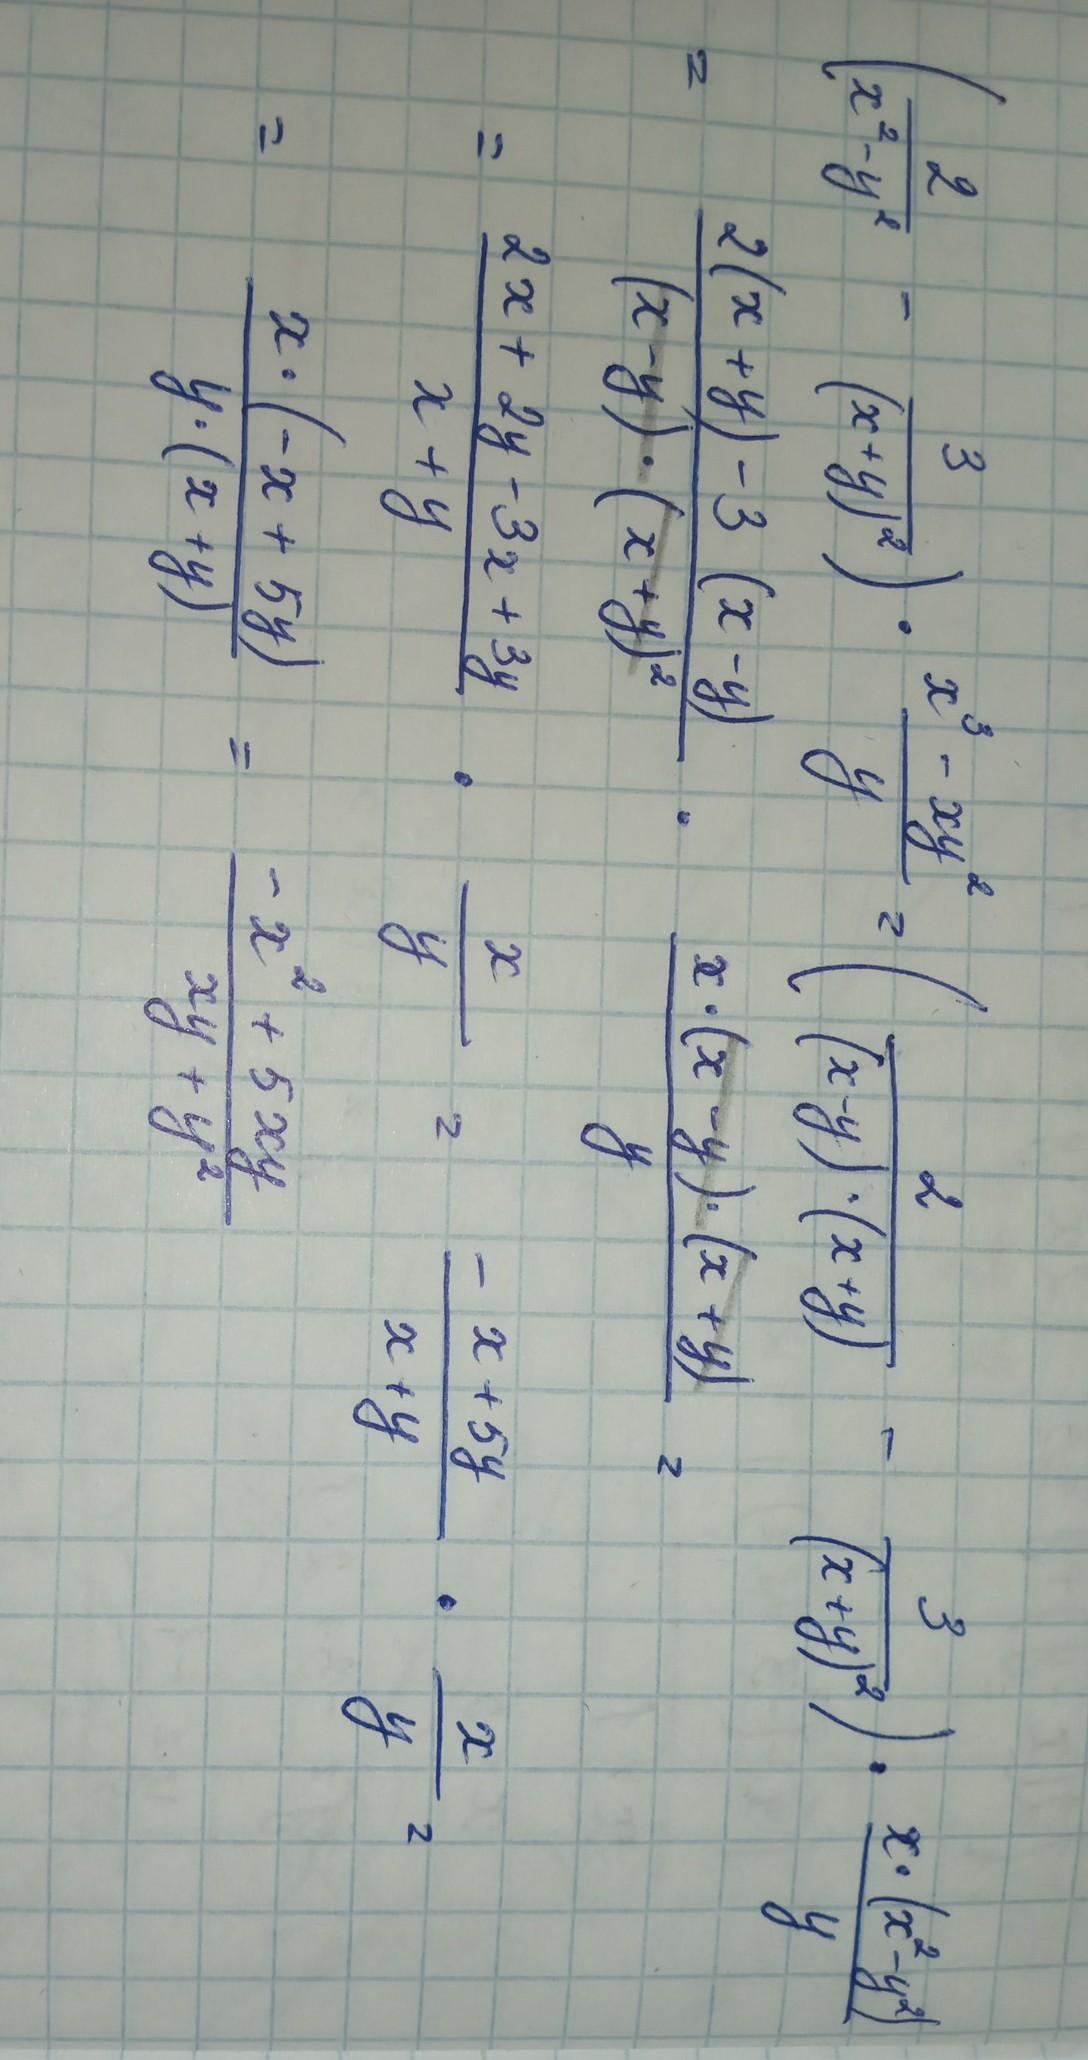 (2/(x²-y²) - 3/(x+y)²) · (x³-xy²)/y = (2/((x-y)·(x+y)) - 3/(x+y)²) · (x·(x²-y²))/y
= (2(x+y)-3(x-y))/((x-y)·(x+y)²) · (x·(x-y)·(x+y))/y =
= (2x+2y-3x+3y)/(x+y) · x/y = (-x+5y)/(x+y) · x/y =
= (x·(-x+5y))/(y·(x+y)) = (-x²+5xy)/(xy+y²)